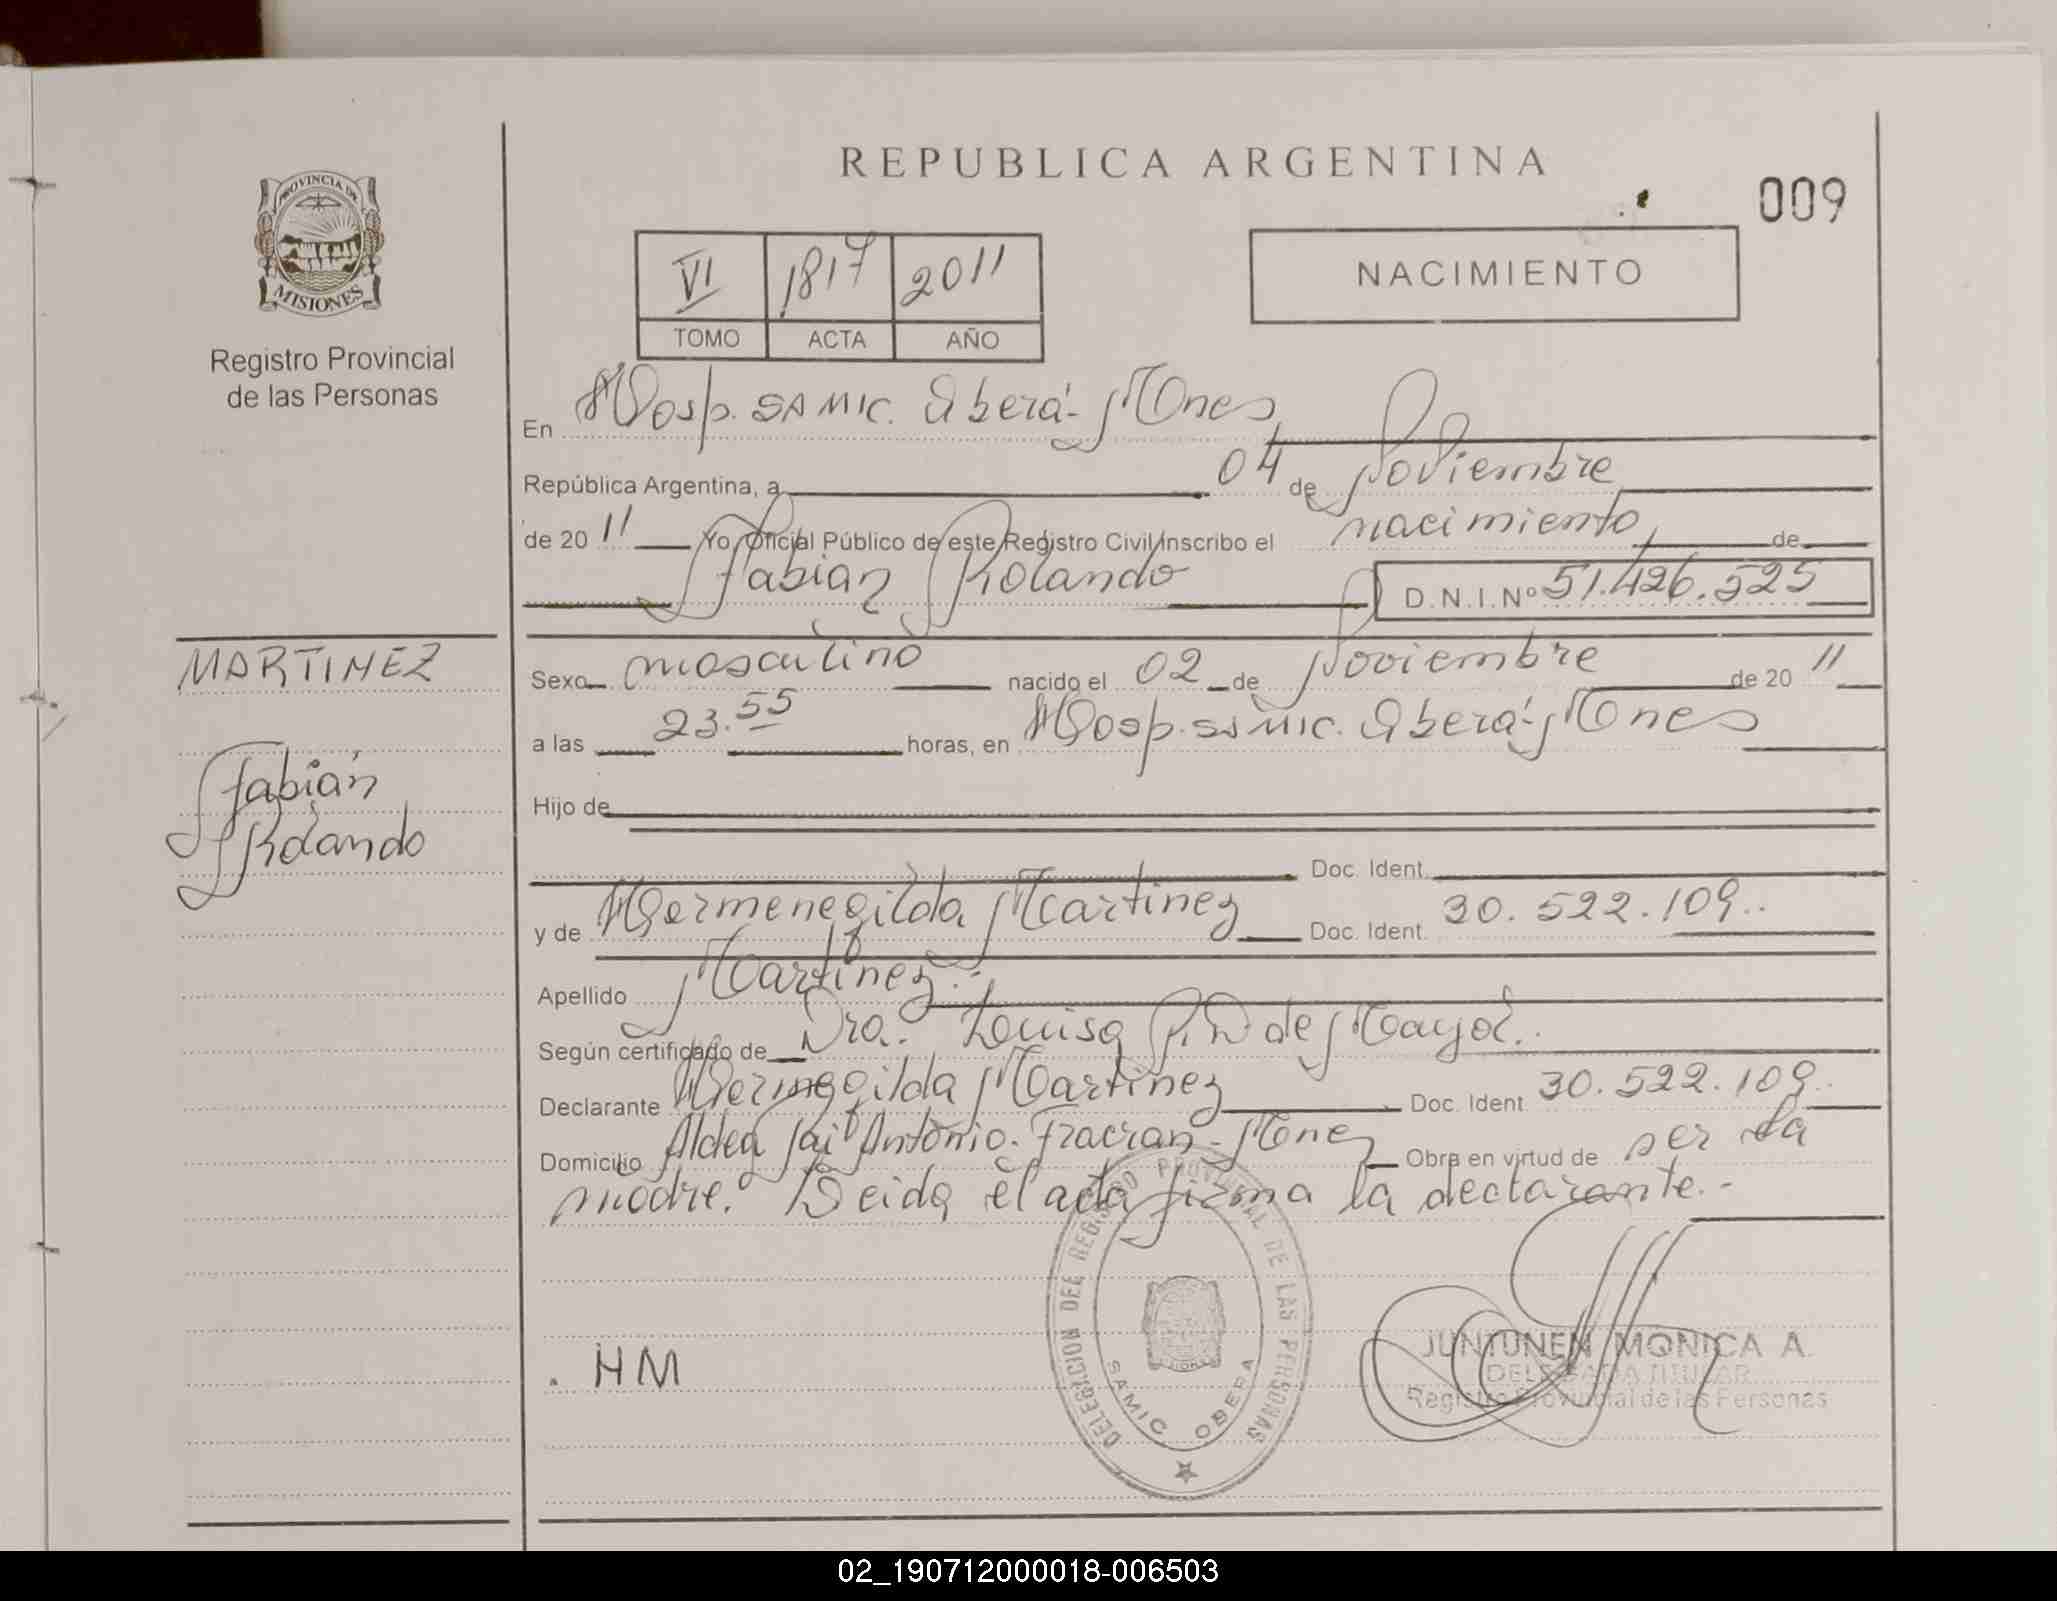 REPUBLICA ARGENTINA
009
PROVINCIA DE
MISIONES
Registro Provincial
de las Personas
VI 1817 2011
TOMO ACTA AÑO
NACIMIENTO
En Hosp. SAMIC. Oberá - Mnes
República Argentina, a 04 de Noviembre
de 20 11 Yo Oficial Público de este Registro Civil Inscribo el nacimiento, de
Fabián Rolando D.N.I.Nº 51.426.525
MARTINEZ
Fabián
Rolando
Sexo masculino nacido el 02 de Noviembre de 20 11
a las 23.55 horas, en Hosp. SAMIC. Oberá - Mnes
Hijo de
Doc. Ident.
y de Hermenegilda Martinez Doc. Ident. 30.522.109..
Apellido Martinez.-
Según certificado de Dra. Louisa de
Declarante Hermegilda Martinez Doc. Ident 30.522.109..
Domicilio Aldea Antonio. Fracran - Mnes Obra en virtud de ser la
madre. Leida el acta firma la declarante.-
DELEGACION DEL REGISTRO PROVINCIAL DE LAS PERSONAS
SAMIC OBERA
. HM
JUNTUNEN MONICA A.
DELEGADA TITULAR
Registro Provincial de las Personas
02_190712000018-006503